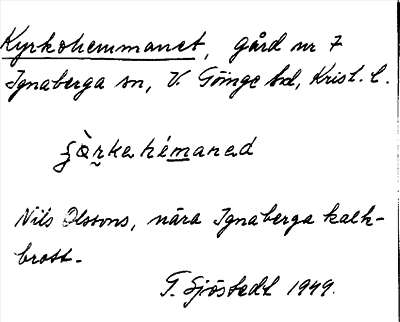 Kyrkohemmanet, gård nr 7
Ignaberga sn, V. Göinge hd, Krist. l.
Nils Olssons, nära Ignaberga kalk-
brott.
G. Sjöstedt 1949.